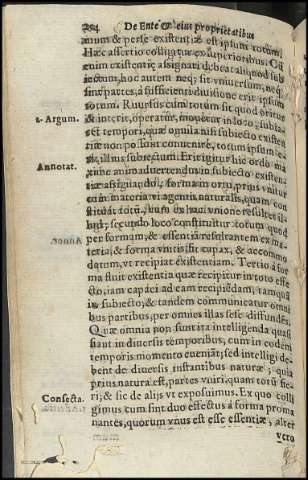 294 De Ente & eius proprietatibus
mum & perse existentiæ est ipsum totum.
Hæc assertio colligitur ex superioribus. Cũ
enim existentiæ assignari debeat aliquod sub
iectum, hoc autem neq; sit vniuersum, neq;
sint partes, a sufficienti diuisione erit ipsum
totum. Rursus cum totum sit quod oritur
2. Argum. & interit, operatur, mouetur in loco, subia-
cet tempori, quæ omnia nisi subiecto existen
tiæ non possint conuenire, totum ipsum e-
rit illius subiectum. Erit igitur hic ordo ma
Annotat. xime animaduertendus in subiecto existen
tiæ assignando, forma in orni, prius vnitur
cum materia vi agentis naturalis, quam con
stituat totũ, cum ex hac vnione resultet il-
lud, secundo loco constituitur totum quod
per formam, & essentia resultantem ex ma-
teria, & forma vnitis fit capax, & accomo-
datum, vt recipiat existentiam. Tertio à for
ma fluit existentia quæ recipitur in toto effe
cto, iam capaci ad eam recipiẽdam, tamquã
in subiecto, & tandem communicatur omni
bus partibus, per omnes illas sese diffundẽs.
Quæ omnia non sunt ita intelligenda quasi
fiant in diuersis temporibus, cum in eodem
temporis momento eueniãt, sed intelligi de
bent de diuersis instantibus naturæ, quia
prius natura est, partes vniri, quam totũ fie-
Consecta. ri, & sic de alijs vt exposuimus. Ex quo colli
gimus cum sint duo effectus à forma proma
nantes, quorum vnus est esse essentiæ, alter
vero